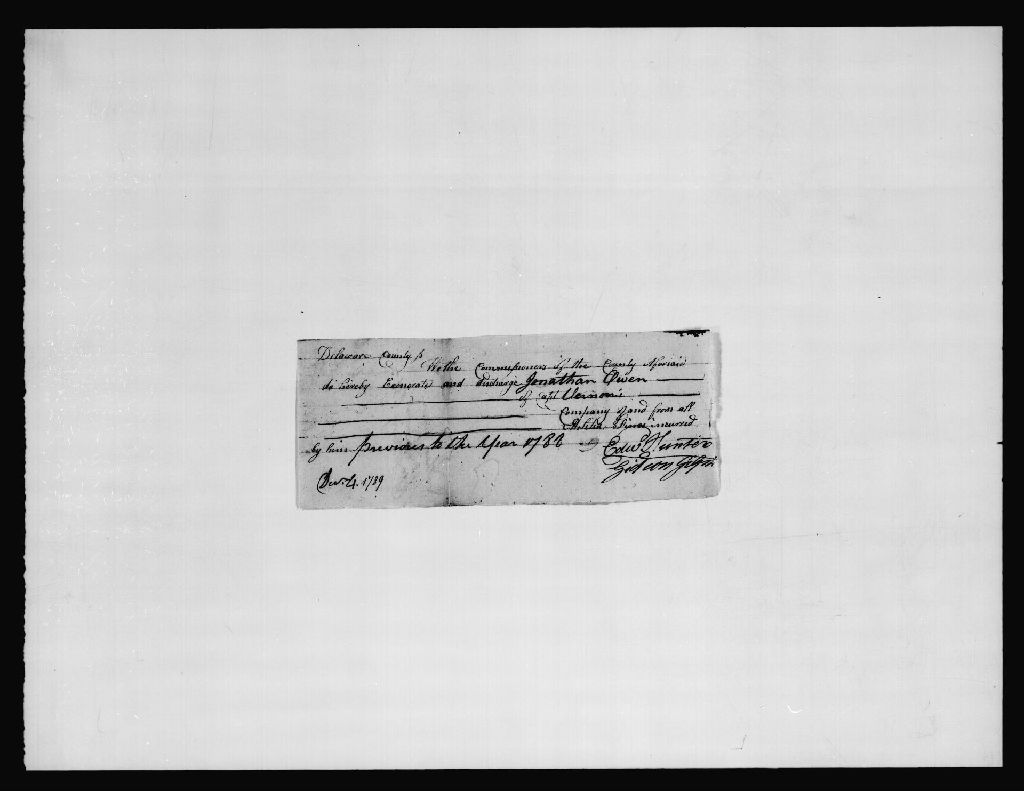 Delaware County ss
We the Commissioners of the County Aforsaid
do hereby Exonerate and discharge Jonathan Owen
of Capt Vernon's
Company of and from all
Militia fines incurred
by him previous to the Year 1788
Edwd Hunter
Gideon Gilpin
Decr. 4. 1789